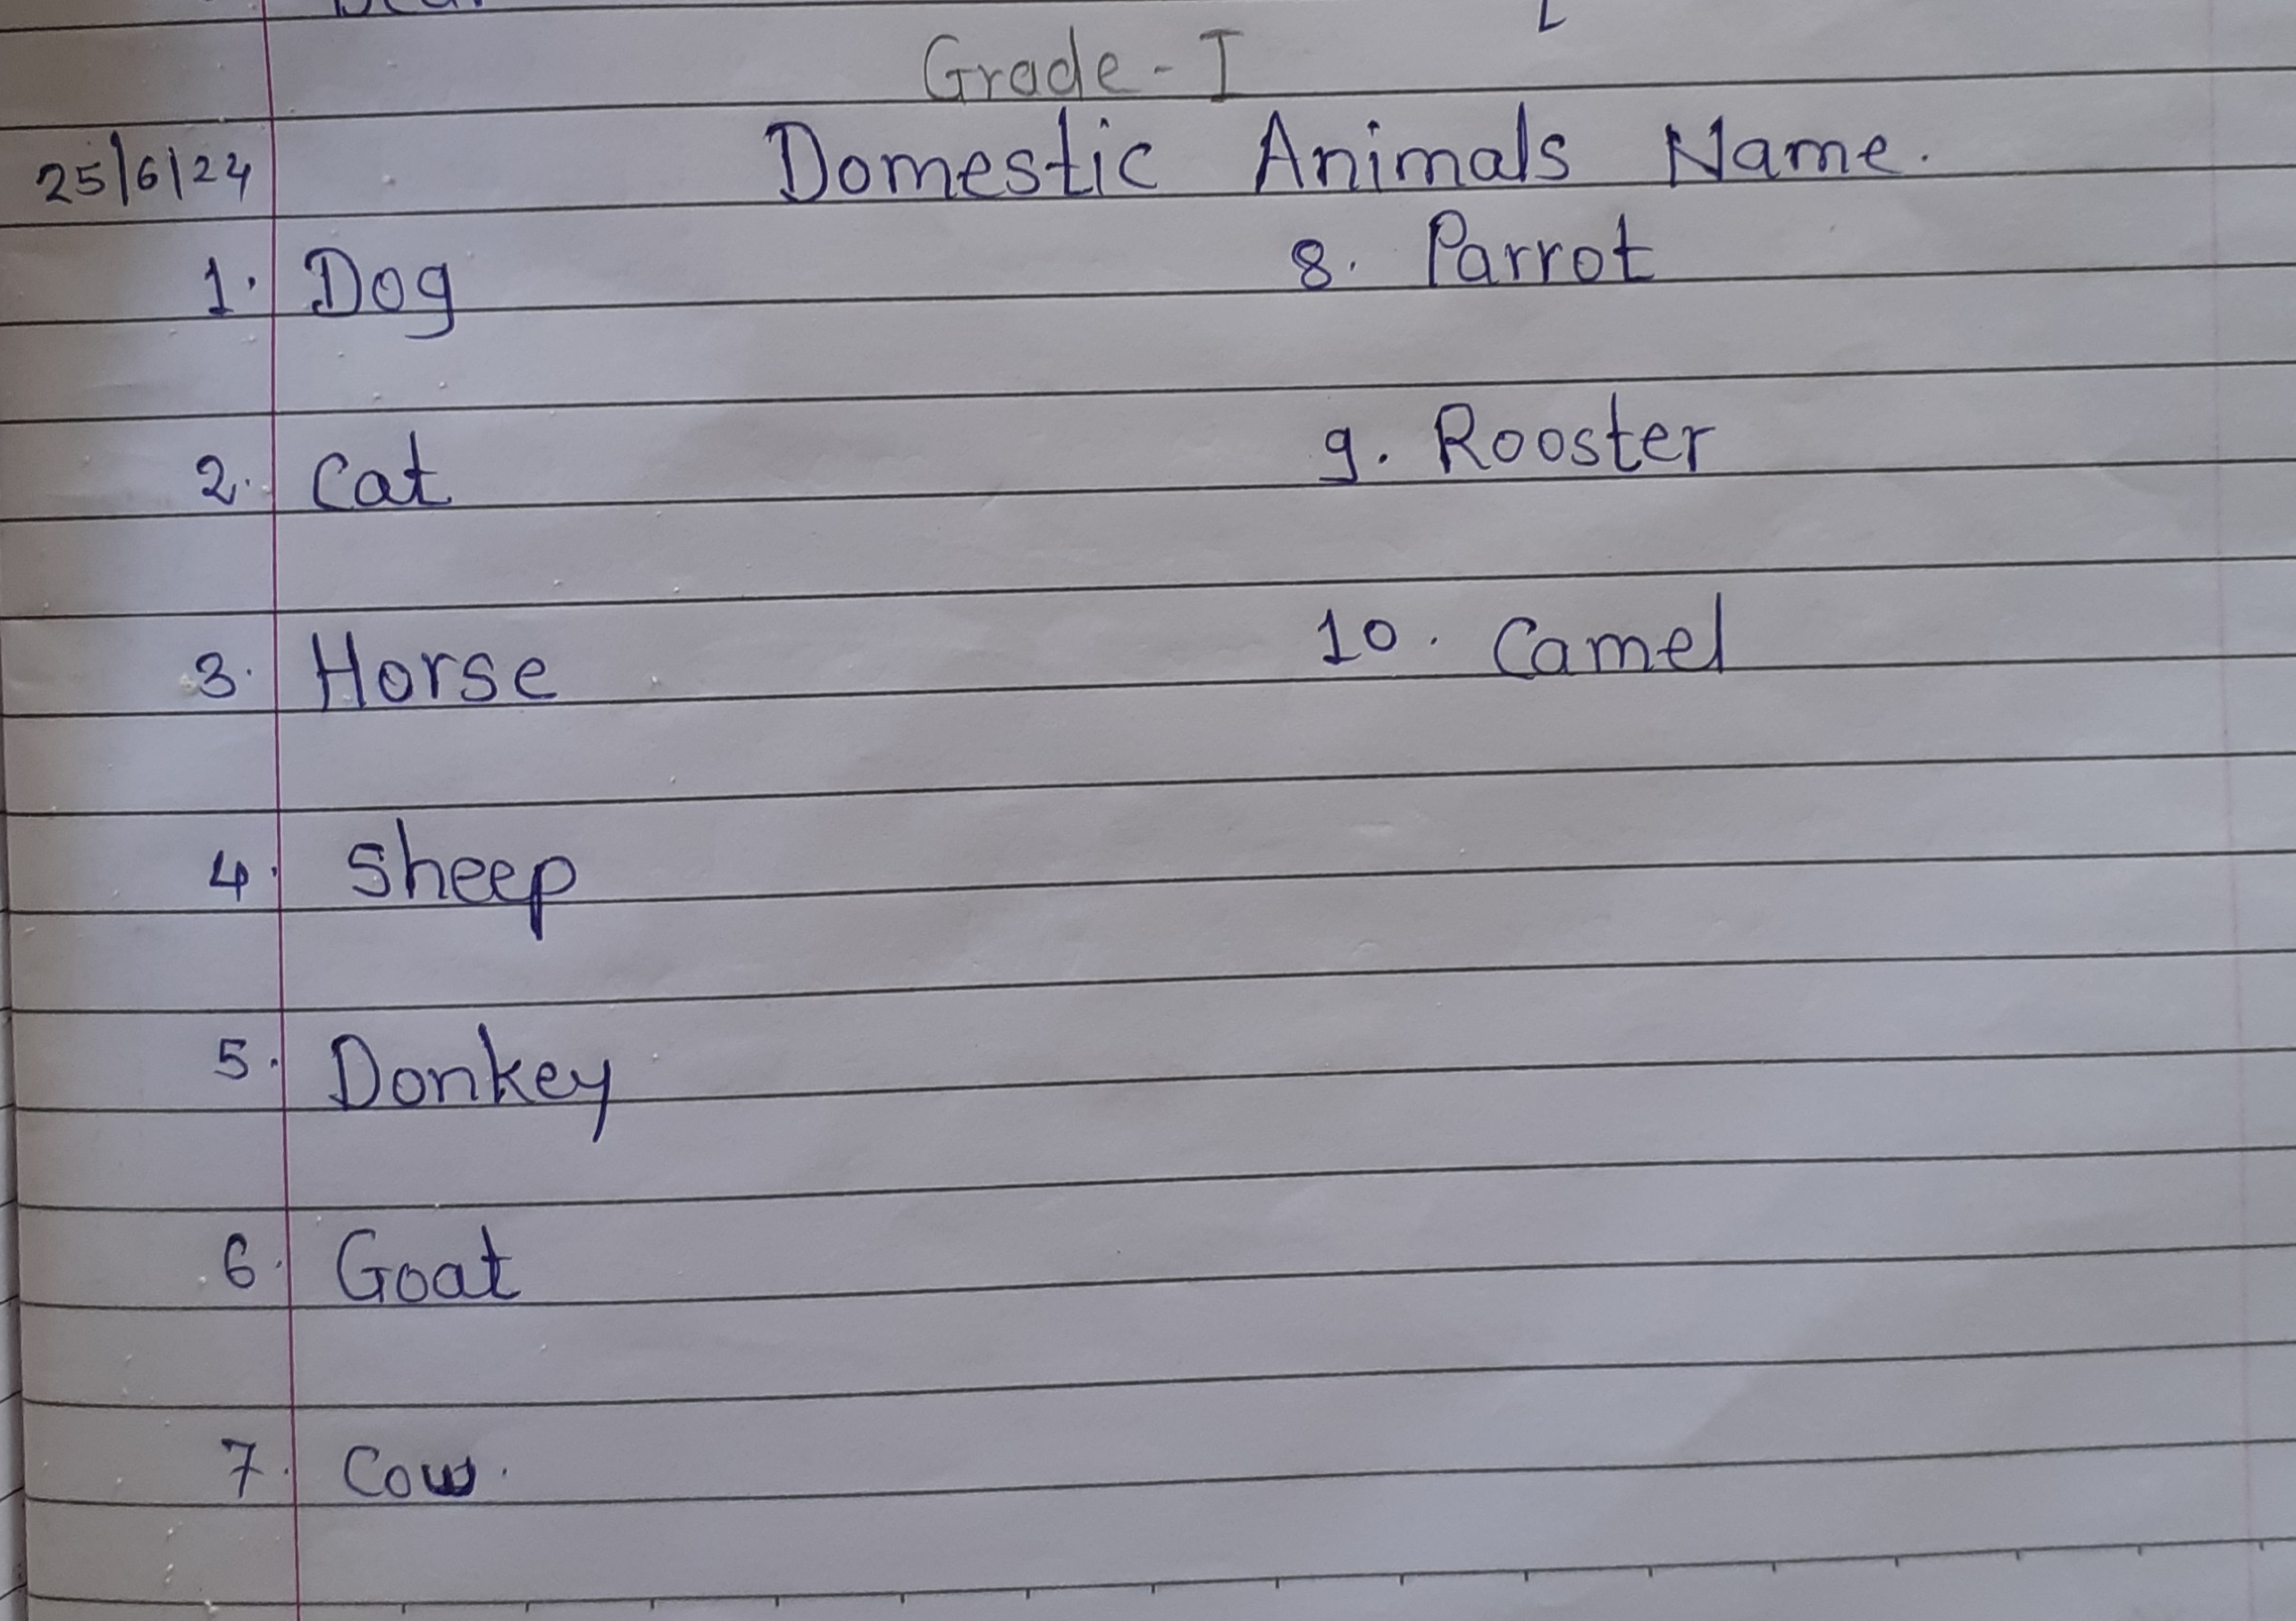 Grade - I
25/6/24
Domestic Animals Name.
1. Dog
2. Cat
3. Horse
4. Sheep
5. Donkey
6. Goat
7. Cow.
8. Parrot
9. Rooster
10. Camel